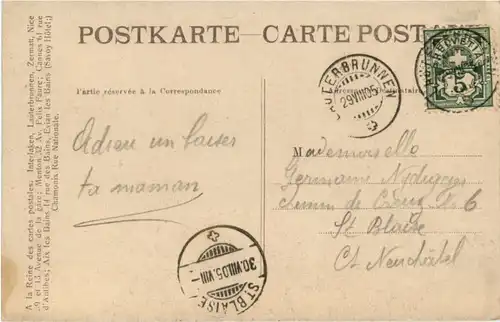 POSTKARTE — CARTE POSTALE
Partie réservée à la Correspondance
LAUTERBRUNNEN
29.VIII.05
5
Adieu un baiser
ta maman
Mademoiselle
Germaine
Chemin de Creuze No 6
St Blaise
Ct Neuchâtel
ST. BLAISE
30.VIII.05.VIII
A la Reine des cartes postales: Interlaken, Lauterbrunnen, Zermatt, Nice
et 13 Avenue de la gare; Menton 32 Av. Félix Faure; Cannes 61 rue
d'Antibes; Aix les Bains, 14 rue des Bains, Evian les Bains (Savoy Hôtel)
Chamonix Rue Nationale.